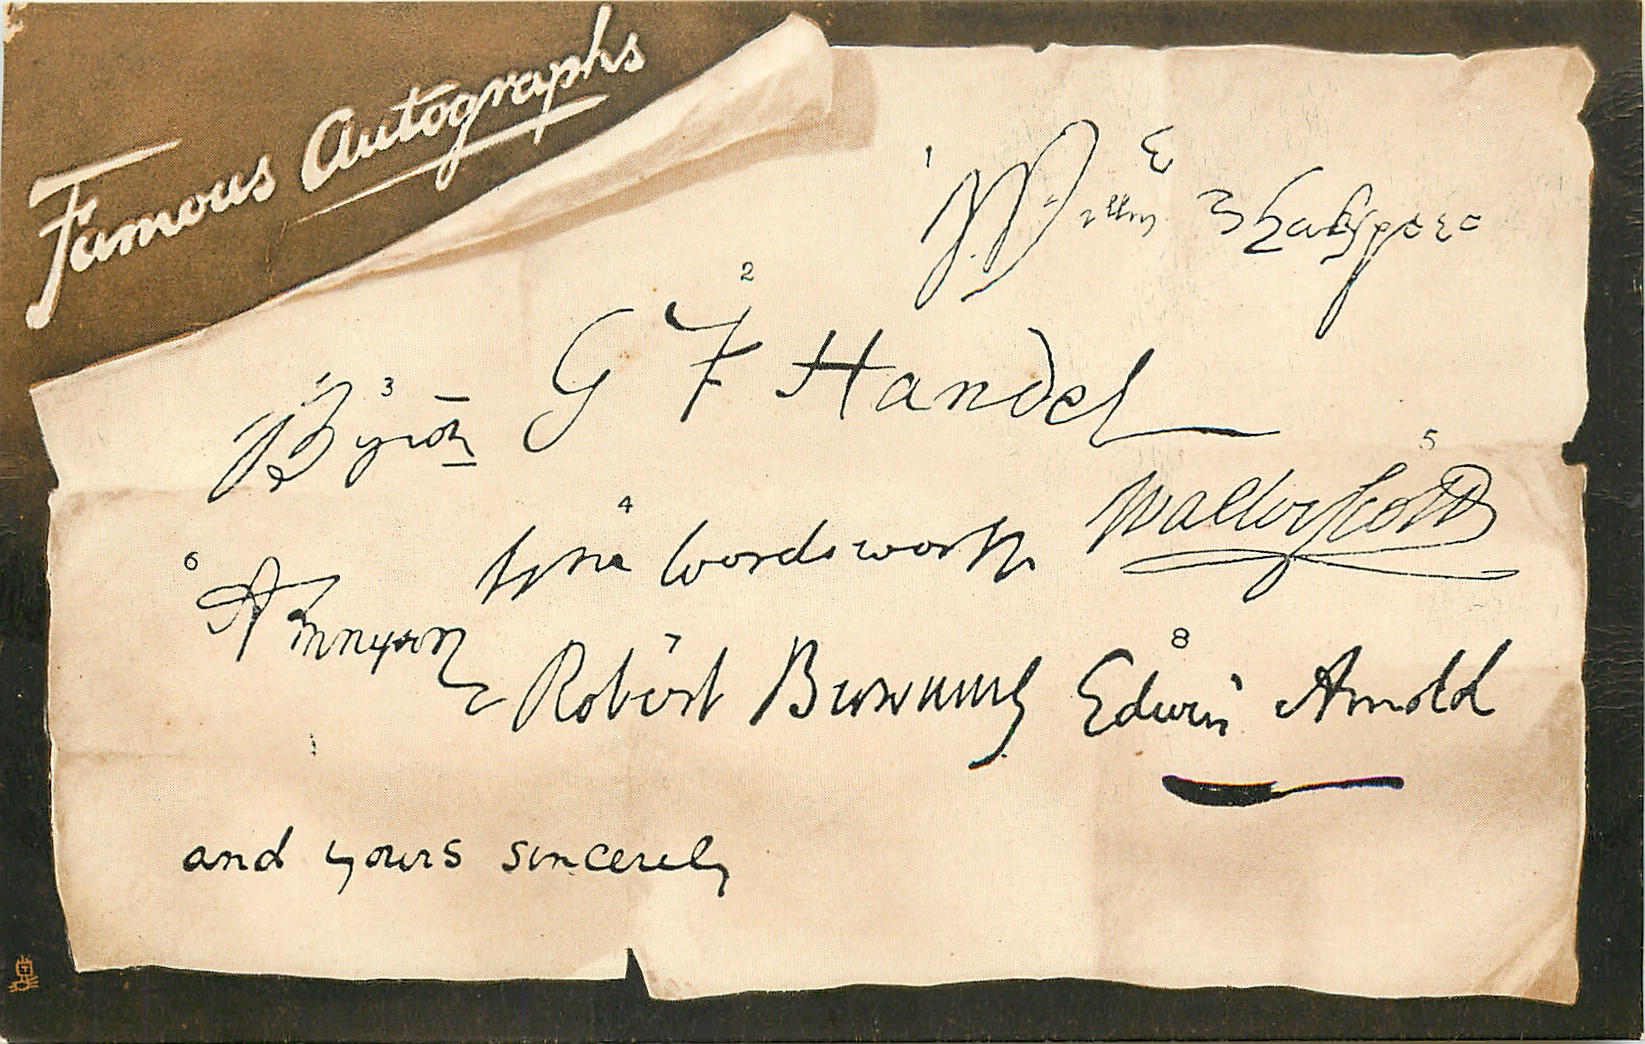 Famous Autographs
1
Willm Shakspere
2
G F Handel
3
Byron
4
Wm Wordsworth
5
Walter Scott
6
A Tennyson
7
Robert Browning
8
Edwin Arnold
and yours sincerely